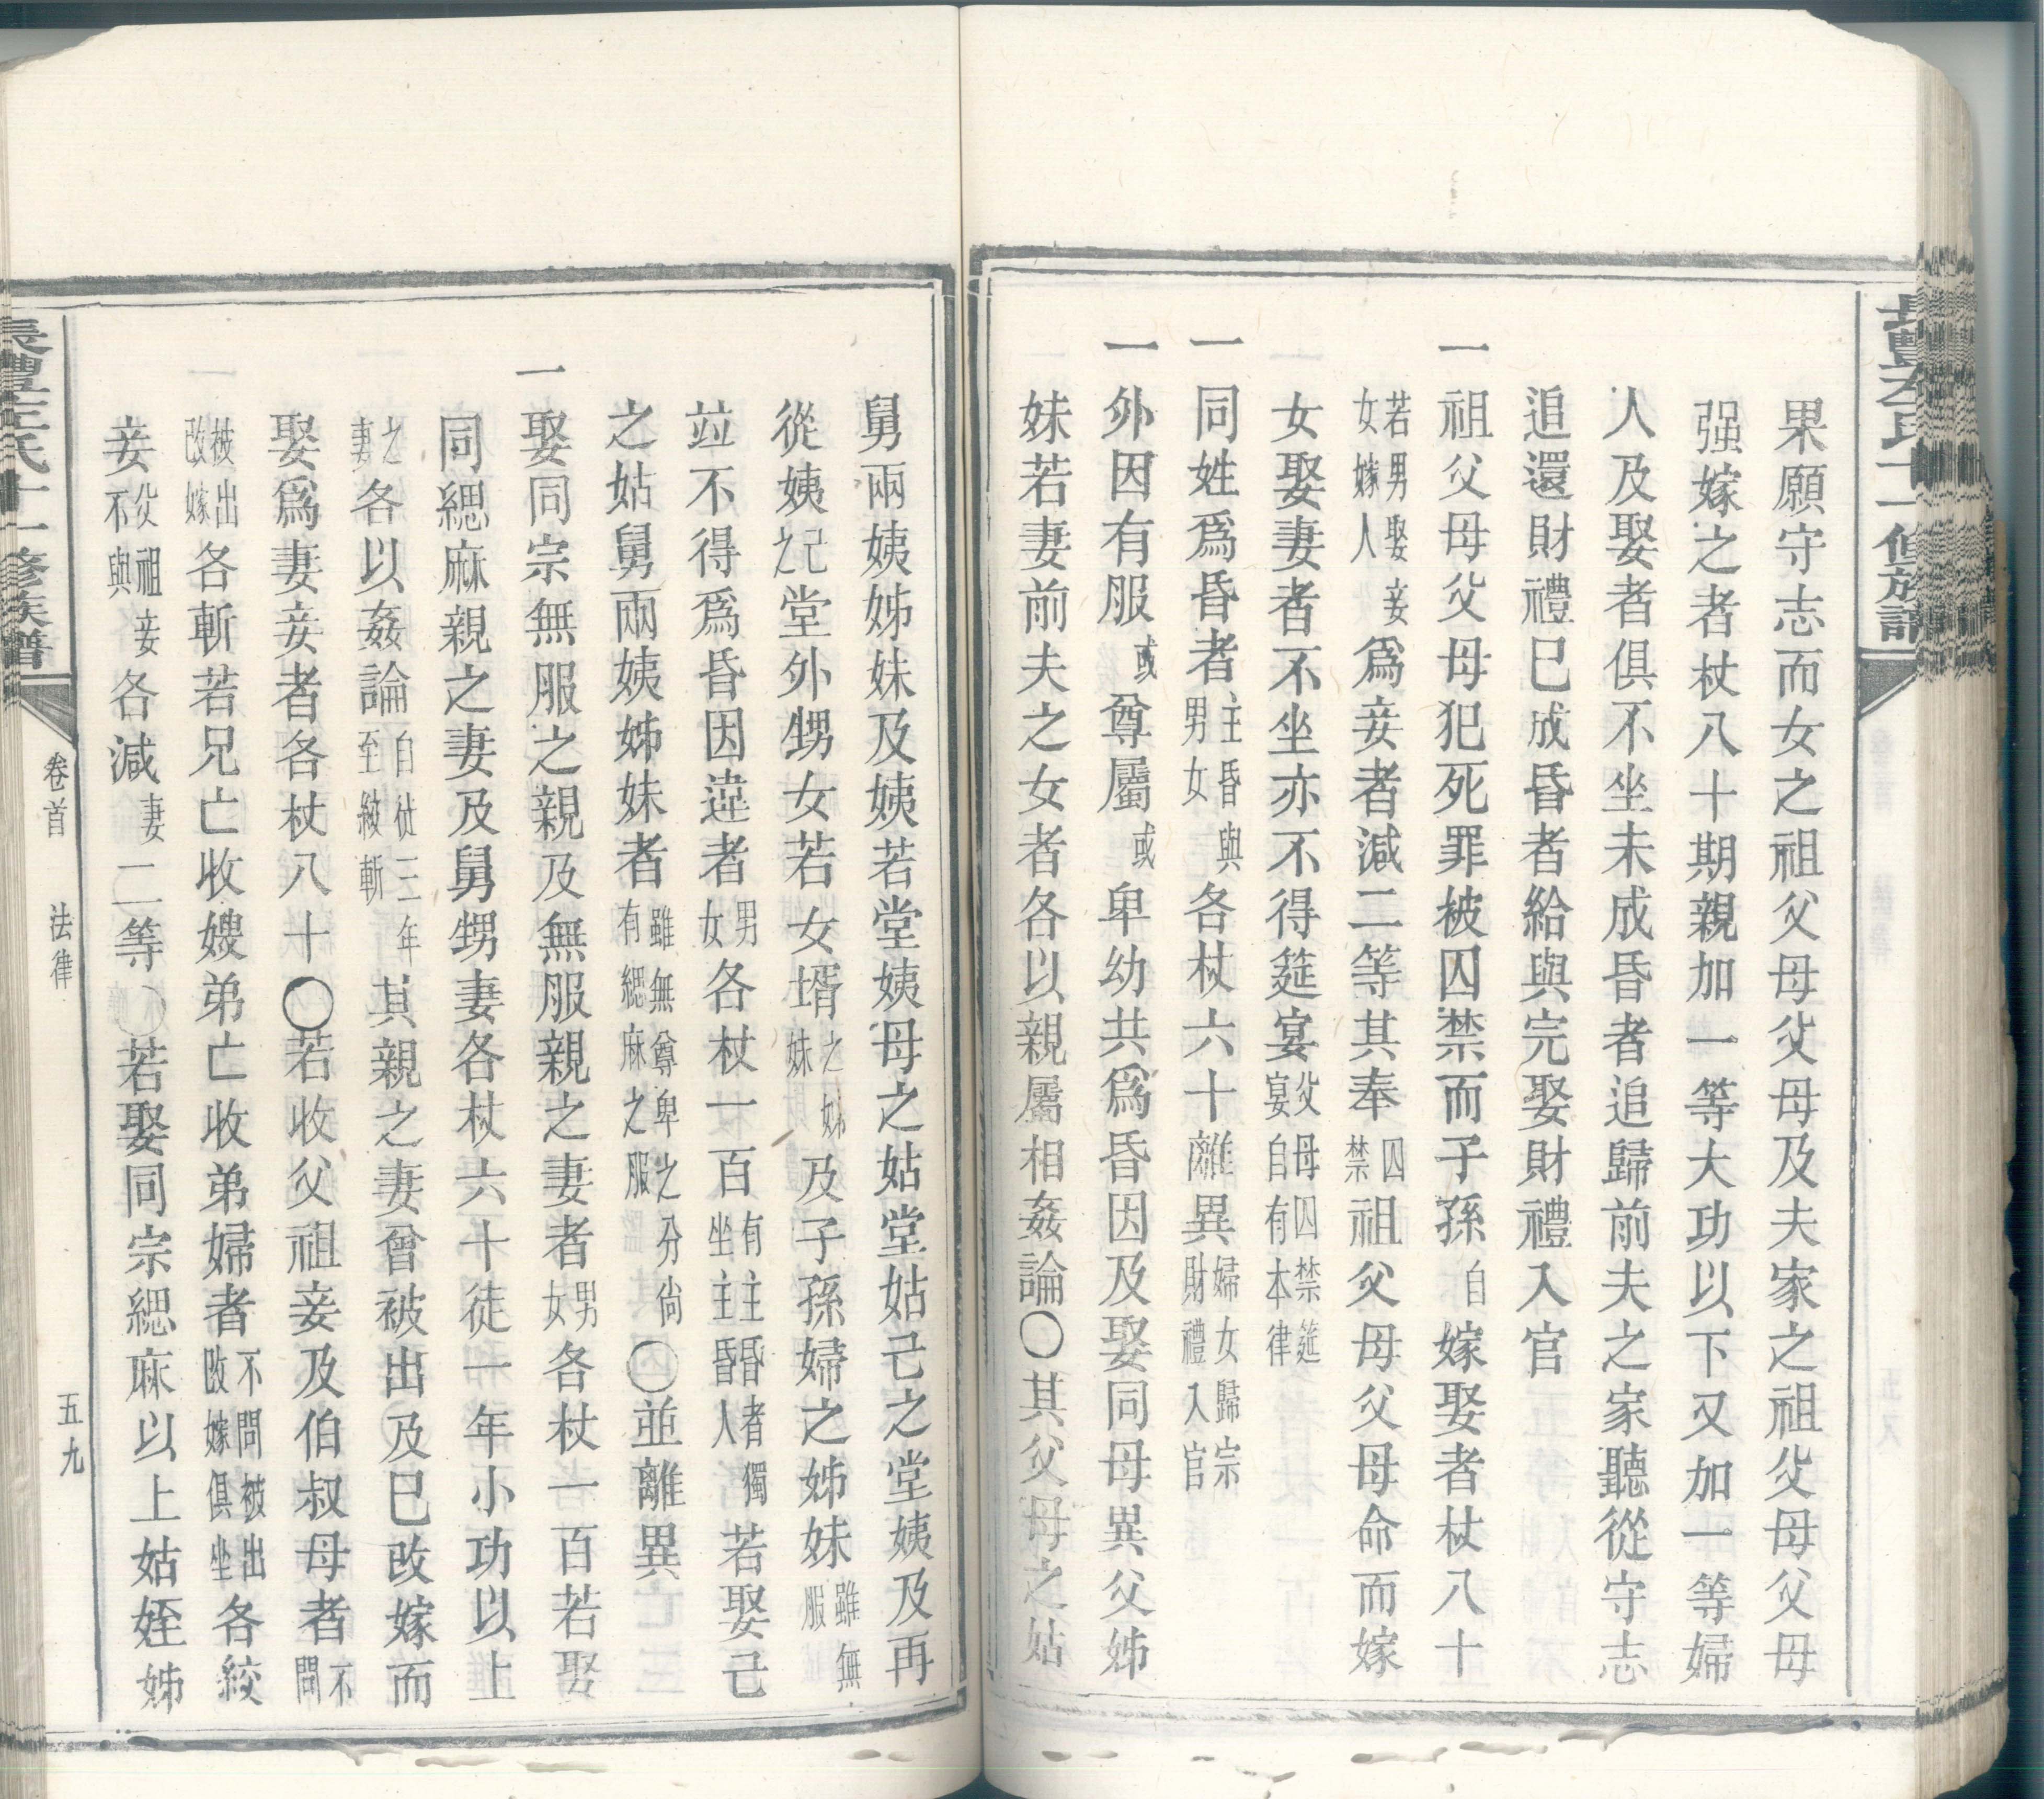 果願守志而女之祖父母父母及夫家之祖父母父母
强嫁之者杖八十期親加一等大功以下又加一等婦
人及娶者俱不坐未成昏者追歸前夫之家聽從守志
追還財禮巳成昏者給與完娶財禮入官
一祖父母父母犯死罪被囚禁而子孫自嫁娶者杖八十
若男娶妾女嫁人爲妾者減二等其奉囚禁祖父母父母命而嫁
女娶妻者不坐亦不得筵宴父母囚禁筵宴自有本律
一同姓爲昏者主昏與男女各杖六十離異婦女歸宗財禮入官
一外因有服或尊屬或卑幼共爲昏因及娶同母異父姊
妹若妻前夫之女者各以親屬相姦論○其父母之姑
舅兩姨姊妹及姨若堂姨母之姑堂姑己之堂姨及再
從姨己之堂外甥女若女壻之姊妹及子孫婦之姊妹雖無服
竝不得爲昏因違者男女各杖一百有主昏者獨坐主昏人若娶己
之姑舅兩姨姊妹者雖無尊卑之分尙有緦麻之服○並離異
一娶同宗無服之親及無服親之妻者男女各杖一百若娶
同緦麻親之妻及舅甥妻各杖六十徒一年小功以上
之妻各以姦論自杖三年至絞斬其親之妻曾被出及巳改嫁而
娶爲妻妾者各杖八十○若收父祖妾及伯叔母者不問
被出改嫁各斬若兄亡收嫂弟亡收弟婦者不問被出改嫁俱坐各絞
妾父祖妾不與各減妻二等○若娶同宗緦麻以上姑姪姊
長豐左氏十一修族譜
卷首
法律
五九